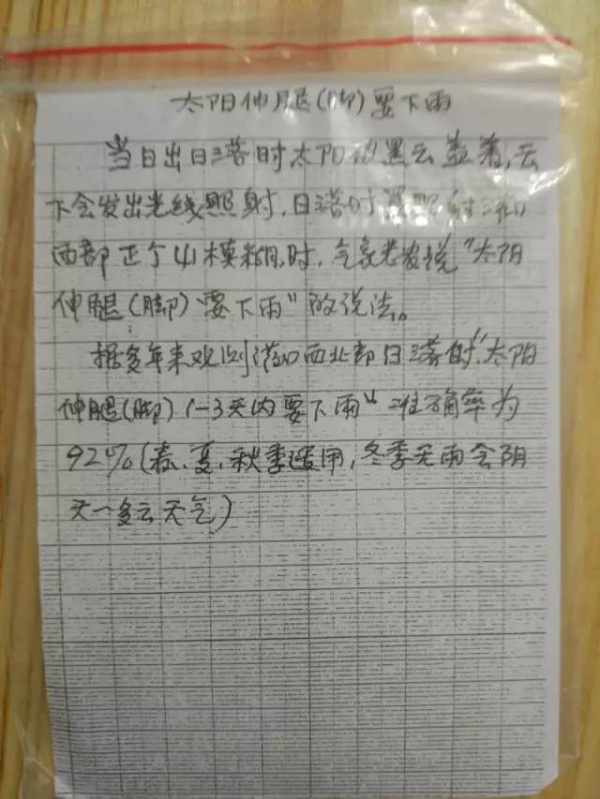 太阳伸腿(脚)要下雨
当日出日落时太阳被黑云盖着,云
下会发出光线照射,日落时
西部正个山模糊时,气象老农说"太阳
伸腿(脚)要下雨"的说法。
据多年来观测 西北部日落时"太阳
伸腿(脚)1-3天内要下雨"准确率为
92%(春、夏,秋季适用,冬季无雨会阴
天一多云天气)